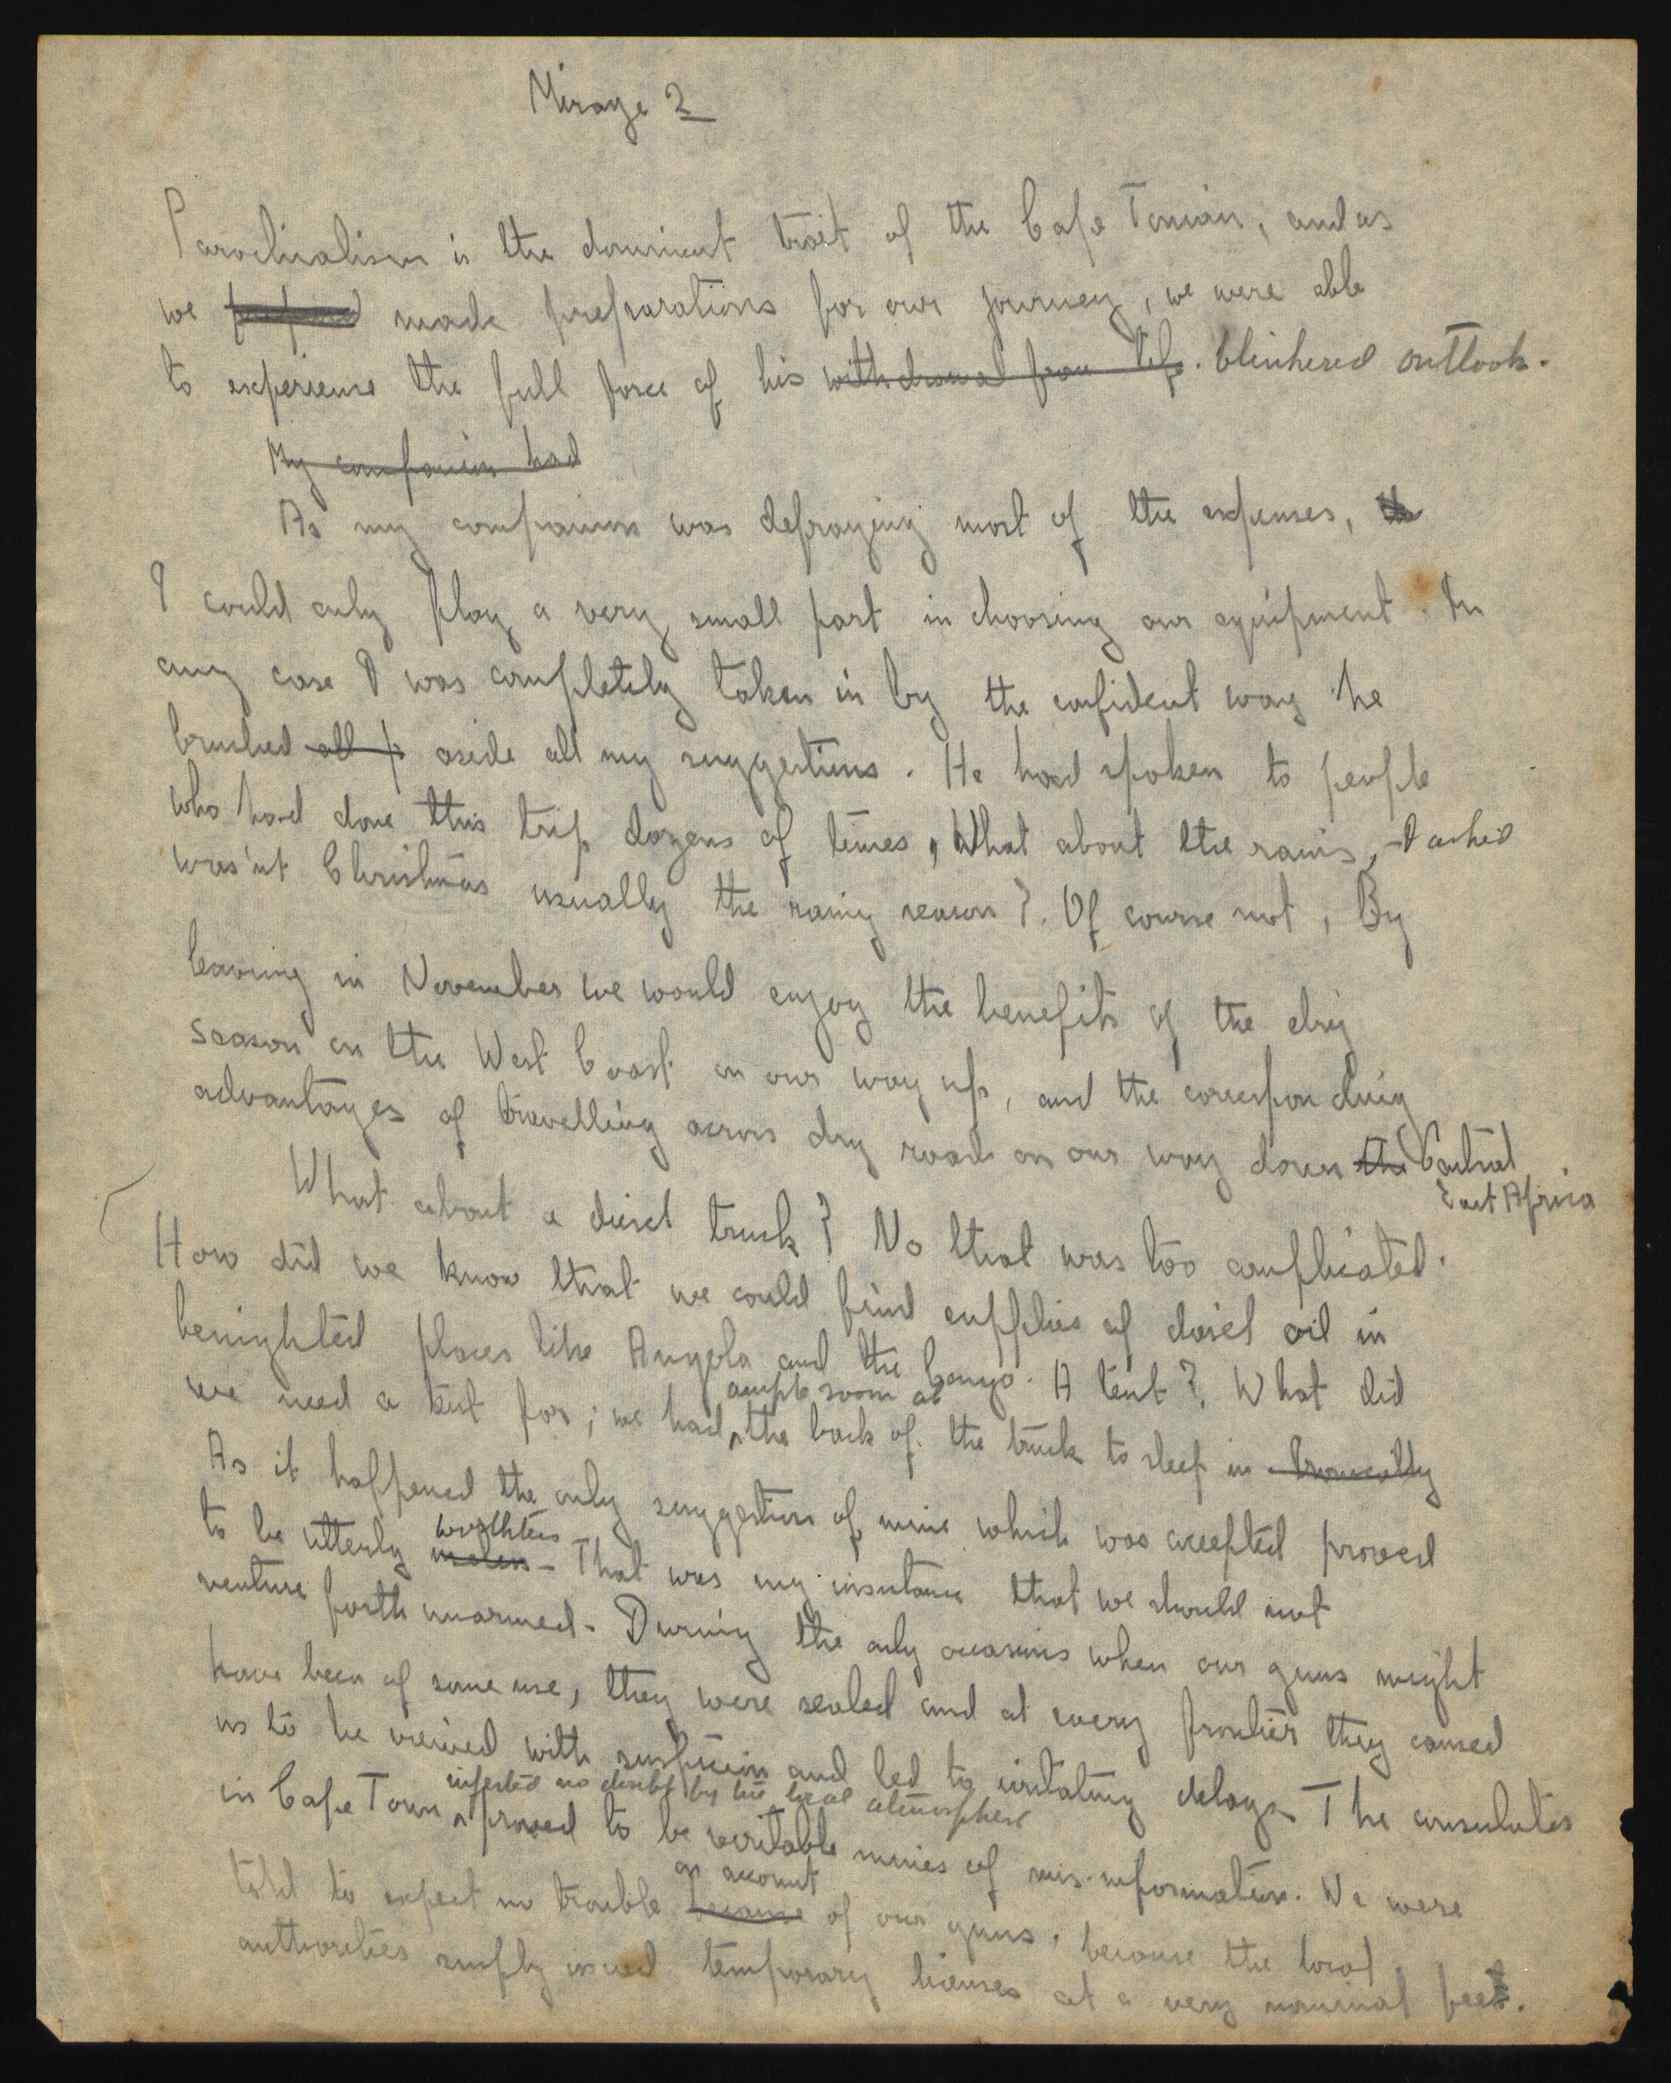 Mirage 2
Parochialism is the dominent trait of the Cape Tonian, and as
we made preparations for our journey, we were able
to experience the full force of his withdrawal from life. blinkered outlook.
My companion had
As my companion was defraying most of the expenses, the
I could only play a very small part in choosing our equipment. In
any case I was completely taken in by the confident way he
brushed all p aside all my suggestions. He had spoken to people
who had done this trip dozens of times, What about the rains, I asked
was'nt Christmas usually the rainy season?. Of course not, By
leaving in November we would enjoy the benefits of the dry
season on the West Coast on our way up, and the corresponding
advantages of travelling across dry roads on our way down the Central
East Africa
What about a diesel truck? No that was too complicated.
How did we know that we could find supplies of diesel oil in
benighted places like Angola and the Congo. A tent?, What did
ample room at
we need a tent for; we had the back of the truck to sleep in Ironically
As it happened the only suggestion of mine which was accepted proved
worthless
to be utterly useless - That was my insistance that we should not
venture forth unarmed - During the only occasions when our guns might
have been of some use, they were sealed and at every frontier they caused
us to be viewed with suspicion and led to irritating delays The consulates
infected no doubt by the local atmosphere
in Cape Town proved to be veritable mines of mis-information. We were
on account
told to expect no trouble because of our guns, because the local
authorities simply issued temporary licenses at a very nominal fee.